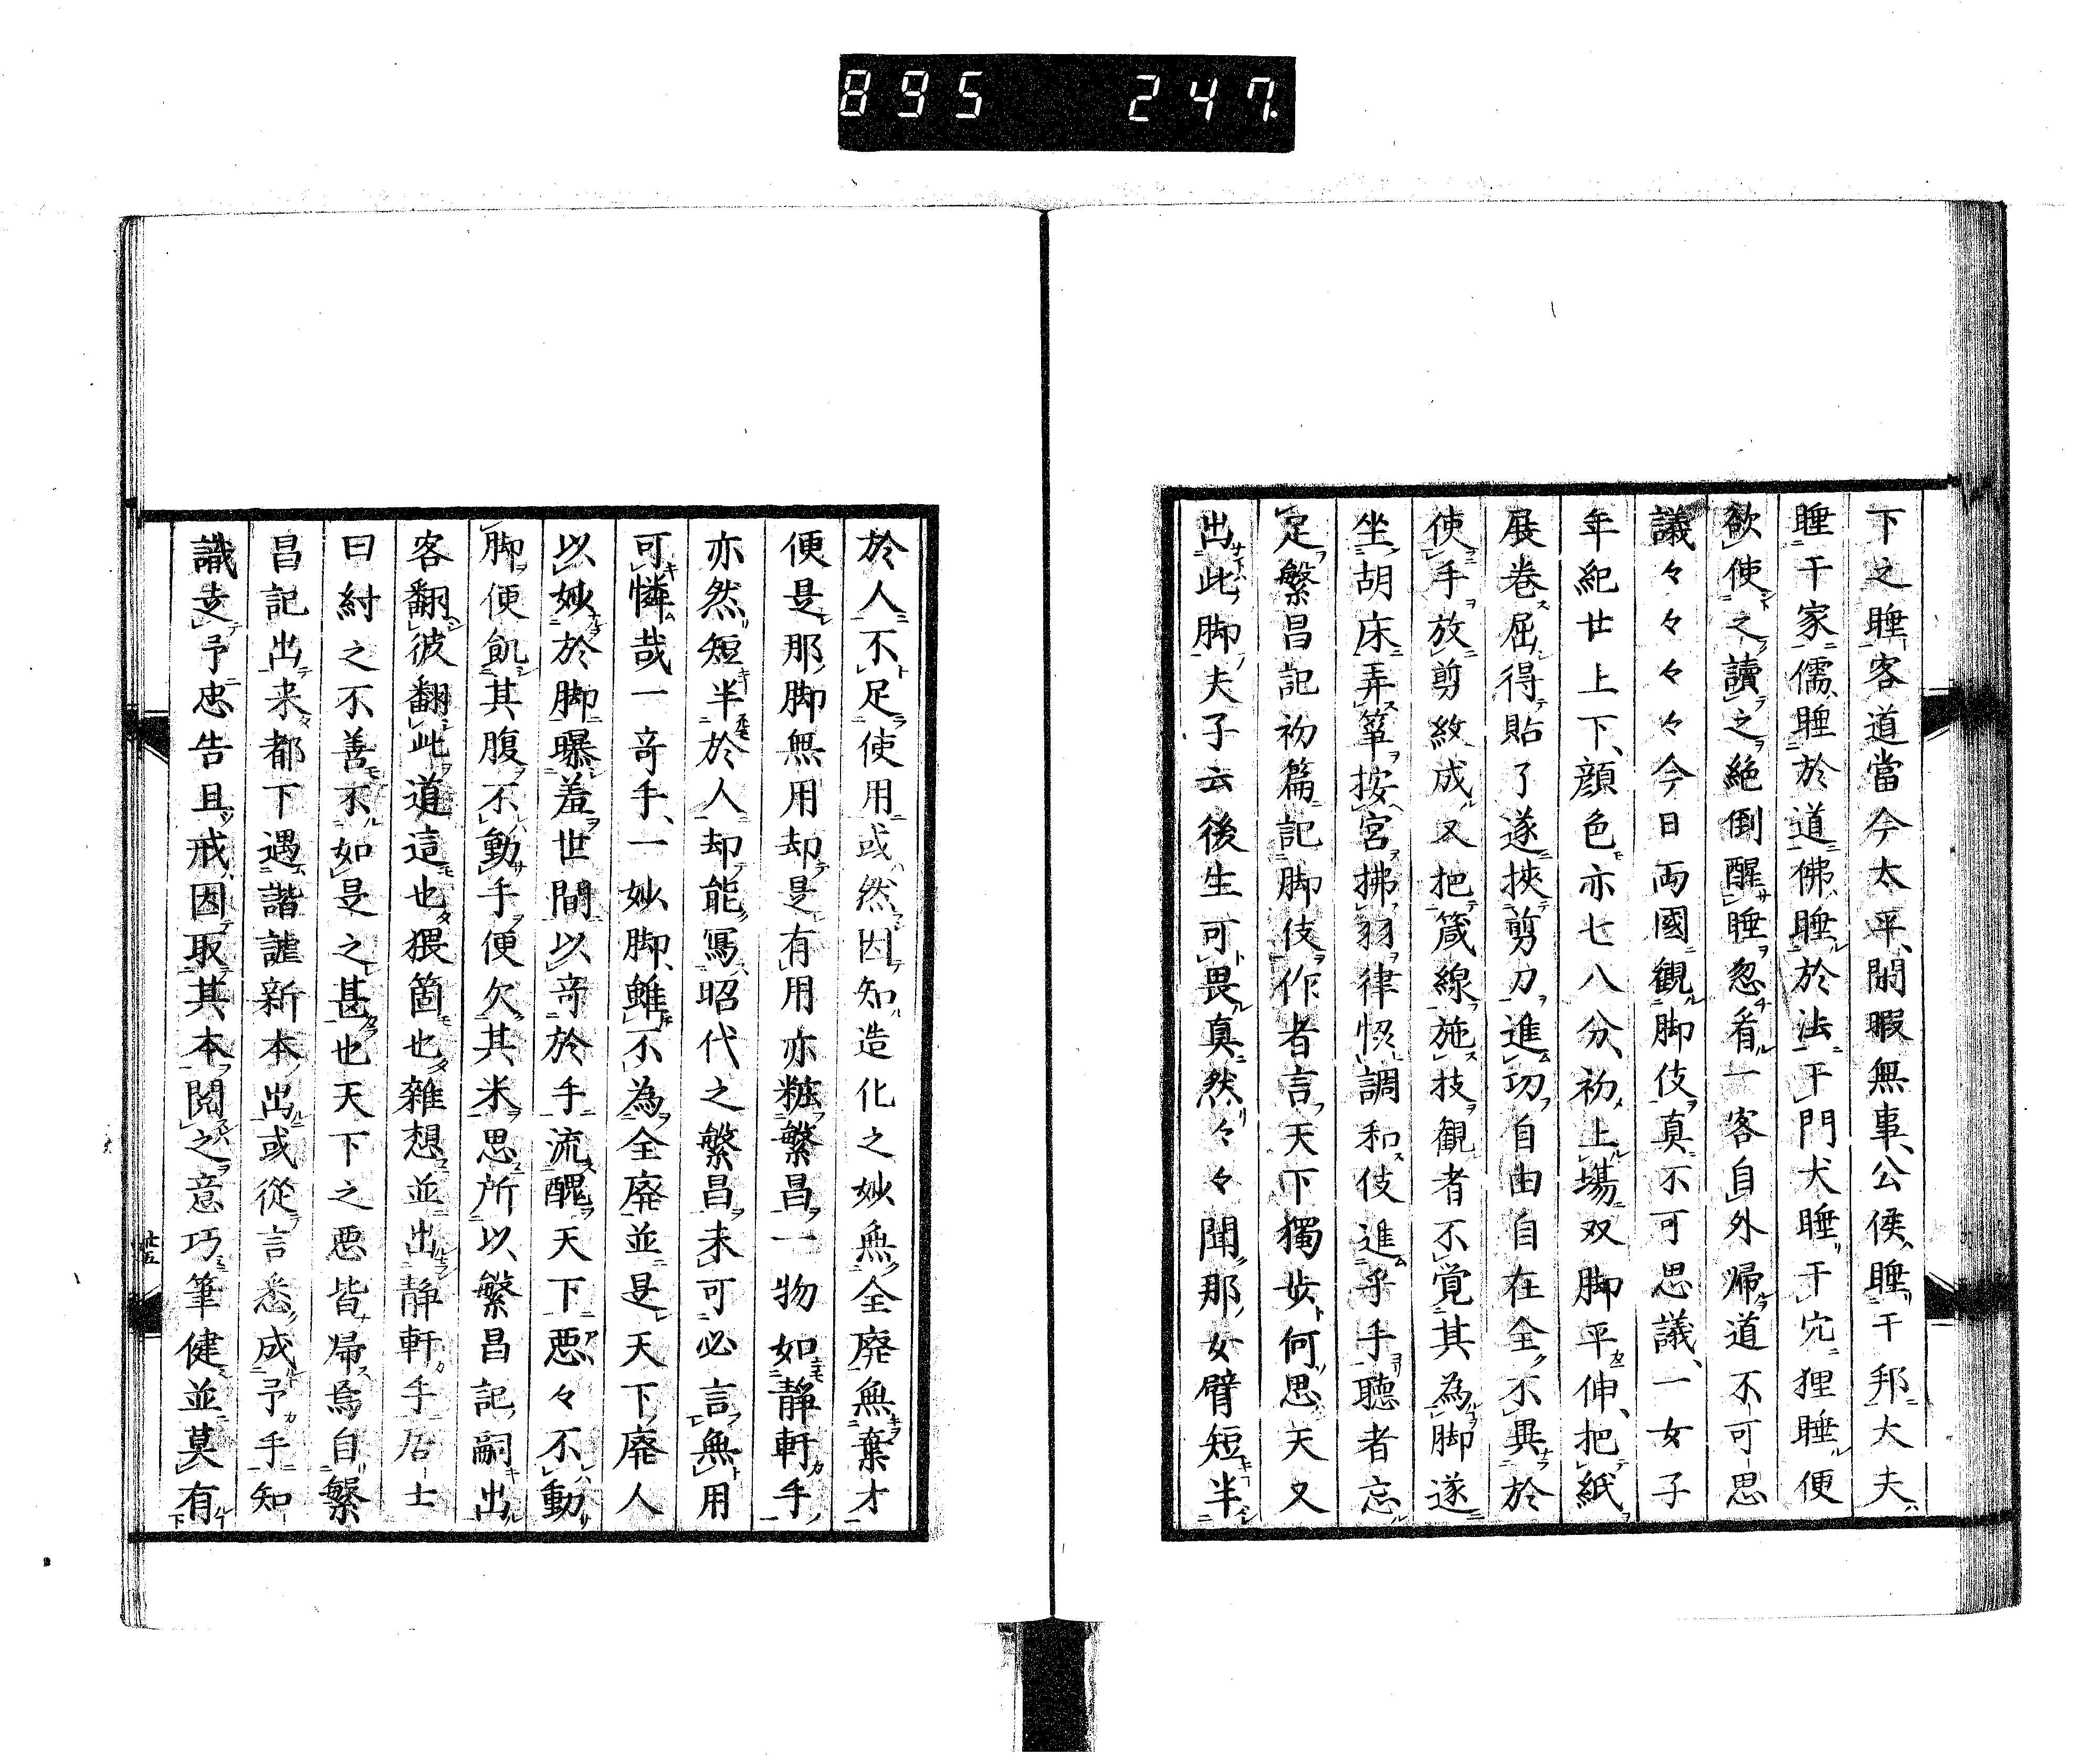 895 247
下之睡客道當今太平閑暇無事公侯睡于邦大夫
睡于家儒睡於道佛睡於法于門犬睡于穴狸睡便
欲使之讀之絶倒醒睡忽看一客自外帰道不可思
議々々々々今日両國觀脚伎真不可思議一女子
年紀廿上下顔色亦七八分初上場双脚平伸把紙
展卷屈得貼了遂挾剪刀進功自由自在全不異於
使手放剪紋成又把箴線施技觀者不覚其為脚遂
坐胡床弄箏按宮拂羽律惚調和伎進乎手聽者忘
足繁昌記初篇記脚伎作者言天下獨步何思天又
出此脚夫子云後生可畏真然々々聞那女臂短半
於人不足使用或然因知造化之妙無全廃無棄才
便是那脚無用却是有用亦粧繁昌一物如静軒手
亦然短半於人却能寫昭代之繁昌未可必言無用
可憐哉一奇手一妙脚雖不為全廃並是天下廃人
以妙於脚曝羞世間以奇於手流醜天下惡々不動
脚便飢其腹不動手便欠其米思所以繁昌記嗣出
客翻彼翻此道這也猥箇也雜想並出静軒手居士
曰紂之不善不如是之甚也天下之悪皆帰焉自繁
昌記出来都下遇諧謔新本出或從言悉成予手知
識走予忠告且戒因取其本閲之意巧筆健並莫有
廿五